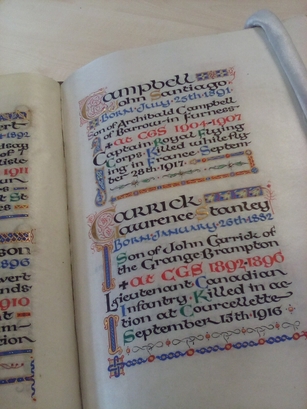 Campbell
John Santiago
Born July 25th 1891
Son of Archibald Campbell
of Barrow-in-Furness
at CGS 1904-1907
Captain Royal Flying
Corps Killed whilst fly-
ing in France Septem-
ber 28th 1917
Carrick
Laurence Stanley
Born January 26th 1882
Son of John Carrick of
the Grange Brampton
at CGS 1892-1896
Lieutenant Canadian
Infantry Killed in ac-
tion at Courcellette
September 15th 1916
1892
1911
St
son
vert
ands
1910
nt
im-
tion